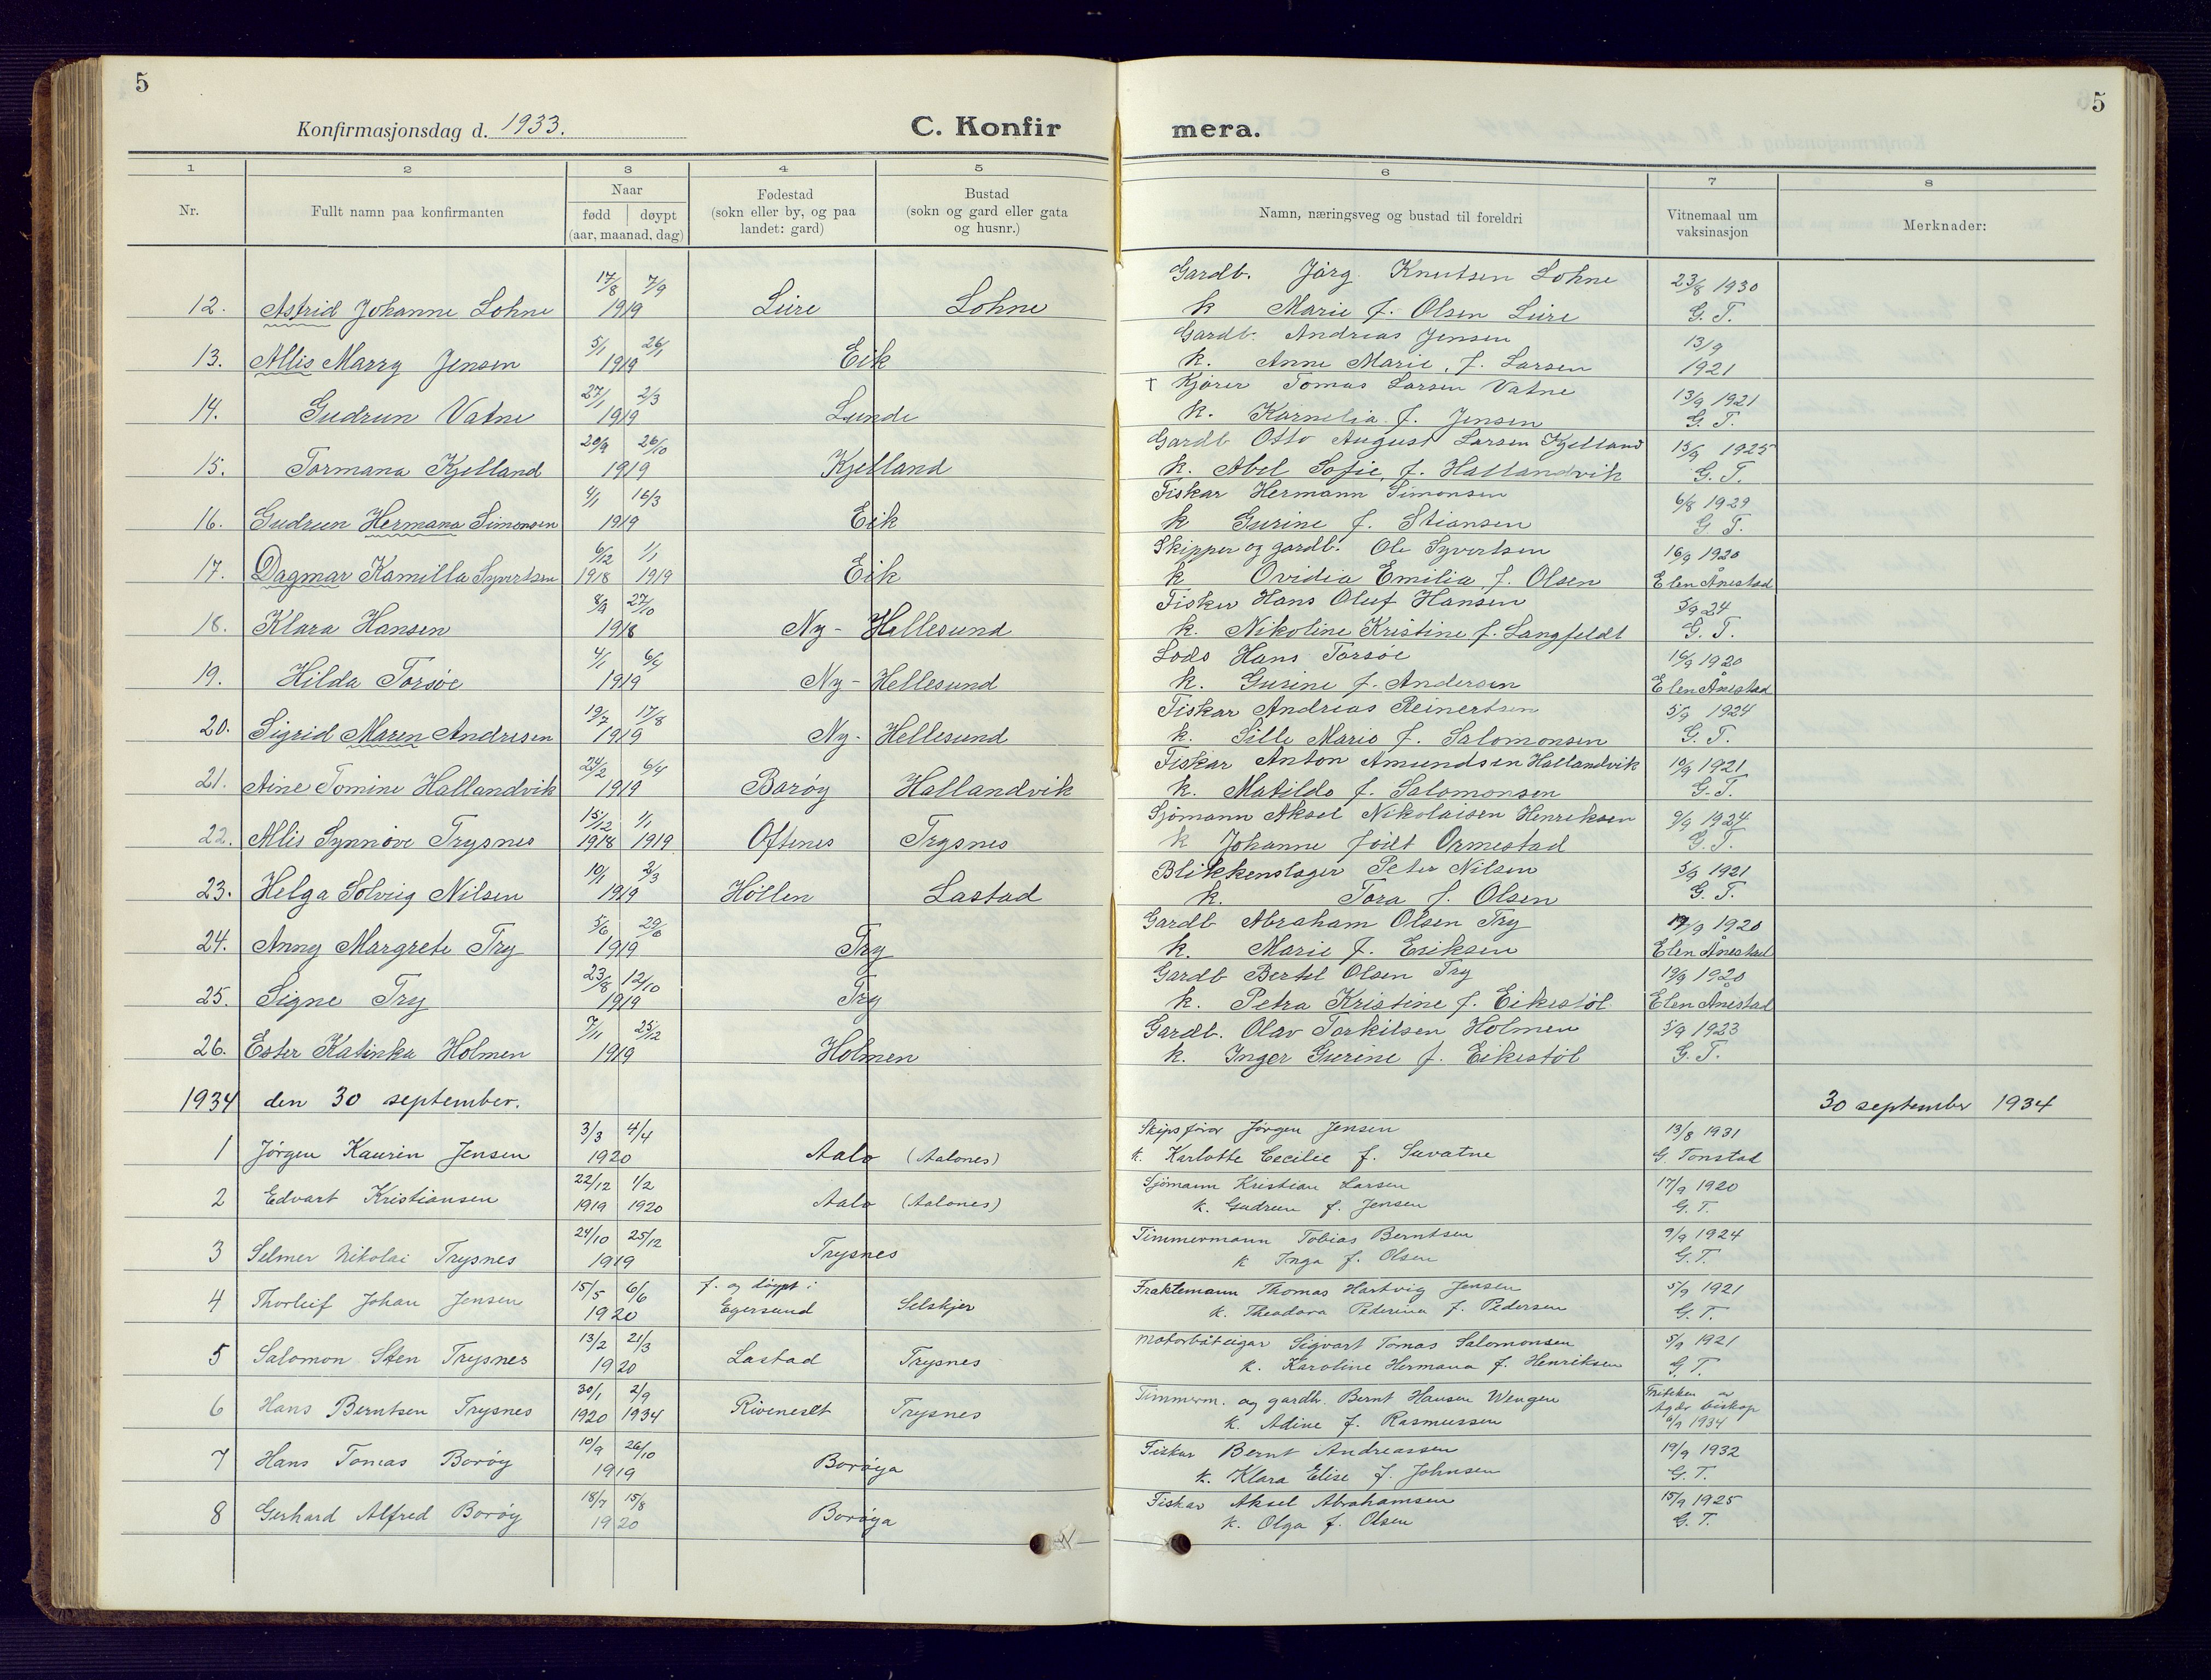 5
5
Konfirmasjonsdag d. 1933.
C. Konfir
mera.
1 2 3 4 5 6 7 8
Nr.
Fullt namn paa konfirmanten
Naar
fødd døypt
(aar, maanad, dag)
Fødestad
(sokn eller by, og paa
landet: gard)
Bustad
(sokn og gard eller gata
og husnr.)
Namn, næringsveg og bustad til foreldri
Vitnemaal um
vaksinasjon
Merknader:
17/8 7/9 Gardb. Jørg. Knutsen Lohne 23/8 1930
12. Astrid Johanne Lohne 1919 Lire Lohne k Marie f. Olsen Lire G. T.
5/1 26/1 Gardb. Andreas Jensen 13/9
13. Allis Marry Jensen 1919 Eik k. Anne Marie, f. Larsen 1921
27/1 2/3 † Kjører Tomas Larsen Vatne 13/9 1921
14. Gudrun Vatne 1919 Lunde k. Kornelia f. Jensen G. T.
20/9 26/10 Gardb Otto August Larsen Kjelland 15/9 1925
15. Tormana Kjelland 1919 Kjelland k. Abel Sofie, f. Hallandvik G. T.
4/1 16/3 Fiskar Hermann Simonsen 6/8 1929
16. Gudrun Hermana Simonsen 1919 Eik k Gurine f. Stiansen G T.
6/12 1/1 Skipper og gardb. Ole Syvertsen 16/9 1920
17. Dagmar Kamilla Syvertsen 1918 1919 Eik k Ovidia Emilia, f. Olsen Elen Ånestad
8/9 27/10 Fisker Hans Oluf Hansen 5/9 24
18. Klara Hansen 1918 Ny-Hellesund k. Nikoline Kristine f. Langfeldt G. T.
4/1 6/4 Lods Hans Torsøe 16/9 1920
19. Hilda Torsøe 1919 Ny-Hellesund k. Gurine f. Andersen Elen Ånestad
19/7 17/8 Fiskar Andreas Reinertsen 5/9 1924
20. Sigrid Maren Andresen 1919 Ny-Hellesund k. Sille Marie f. Salomonsen G. T.
24/2 6/4 Fiskar Anton Amundsen Hallandvik 10/9 1921
21. Aine Tomine Hallandvik 1919 Borøy Hallandvik k. Matilde f. Salomonsen G. T.
15/12 1/1 Sjömann Aksel Nikolaisen Henriksen 9/9 1924
22. Allis Synnøve Trysnes 1918 1919 Oftenes Trysnes k Johanne födt Ormestad G. T.
10/1 2/3 Blikkenslager Peter Nilsen 5/9 1921
23. Helga Solveig Nilsen 1919 Höllen Lastad k. Tora f. Olsen G. T.
5/6 29/6 Gardb Abraham Olsen Try 19/9 1920
24. Anny Margrete Try 1919 Try k. Marie f. Eriksen Elen Ånestad
23/8 12/10 Gardb Bertel Olsen Try 19/9 1920
25. Signe Try 1919 Try k. Petra Kristine f. Eikestøl Elen Ånestad
7/11 25/12 Gardb. Olav Torkilsen Holmen 5/9 1923
26. Ester Katinka Holmen 1919 Holmen k. Inger Gurine f. Eikestöl G. T.
1934 den 30 september. 30 september 1934
3/3 4/4 Skipsförar Jörgen Jensen 13/8 1931
1 Jörgen Kaurin Jensen 1920 Aalo (Aalones) k. Karlotte Cecilie f. Suvatne G. Tonstad
22/12 1/2 Sjömann Kristian Larsen 17/9 1920
2 Edvart Kristiansen 1919 1920 Aalo (Aalones) k. Gudrun f. Jensen G. T.
24/10 25/12 Timmermann Tobias Berntsen 9/9 1924
3 Selmer Nikolai Trysnes 1919 Trysnes k Inga f. Olsen G. T.
15/5 6/6 f. og døypt i: Fraktemann Thomas Hartvig Jensen 5/9 1921
4 Thorleif Johan Jensen 1920 Egersund Selskjer k. Theodora Pederina f. Pedersen G. T.
13/2 21/3 Motorbåteigar Sigvart Tomas Salomonsen 5/9 1921
5 Salomon Sten Trysnes 1920 Lastad Trysnes k. Karoline Hermana f. Henriksen G. T.
30/1 2/9 Timmerm. og gardb. Bernt Hansen Wengen Friteken av
6 Hans Berntsen Trysnes 1920 1934 Riveneset Trysnes k. Adine f. Rasmussen Agder biskop
6/9 1934
10/9 26/10 Fiskar Bernt Andreassen 19/9 1932
7 Hans Tomas Borøy 1919 Borøya k. Klara Elise f. Johnsen G. T.
18/7 15/8 Fiskar Aksel Abrahamsen 15/9 1925
8 Gerhard Alfred Borøy 1920 Borøya k. Olga f. Olsen G. T.